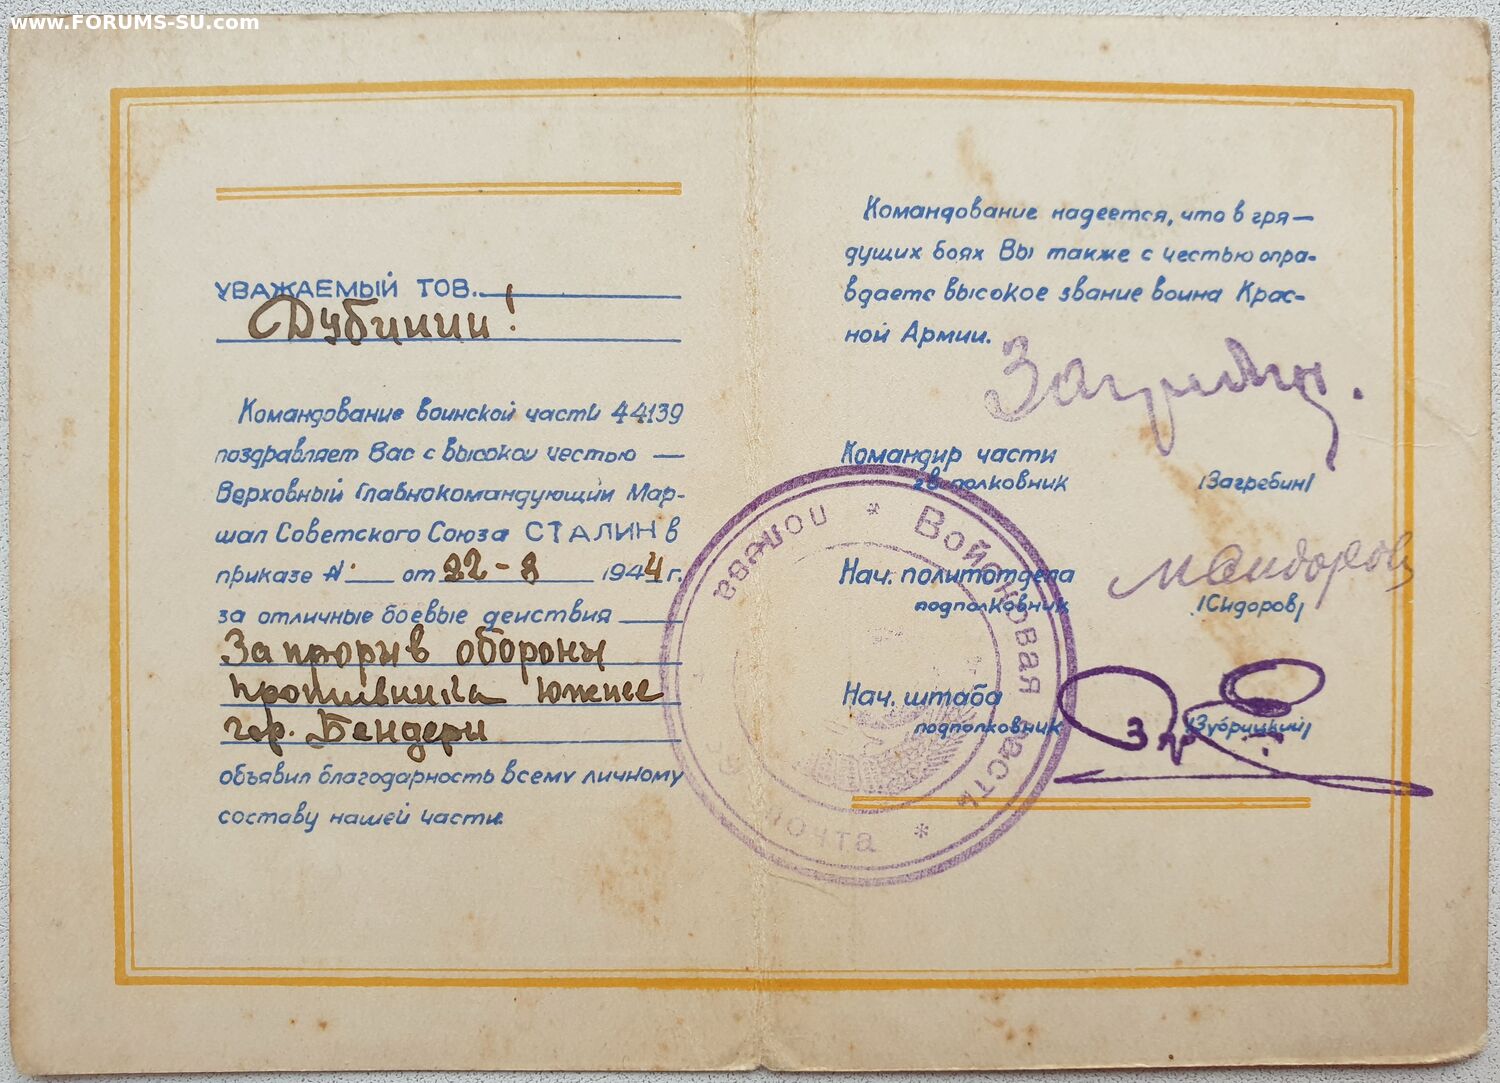 www.FORUMS-SU.com
УВАЖАЕМЫЙ ТОВ.
Дубинин!
Командование воинской части 44139
поздравляет Вас с высокой честью —
Верховный Главнокомандующий Мар-
шал Советского Союза СТАЛИН в
приказе № от 22-8 1944 г.
за отличные боевые действия
За прорыв обороны
противника южнее
гор. Бендеры
объявил благодарность всему личному
составу нашей части.
Командование надеется, что в гря—
дущих боях Вы также с честью опра-
вдаете высокое звание воина Крас-
ной Армии.
Загребин.
Командир части
гв. полковник /Загребин/
Нач. политотдела
подполковник /Сидоров/
М Сидоров
Нач. штаба
подполковник /Зубрицкий/
Войсковая часть * полевая почта *